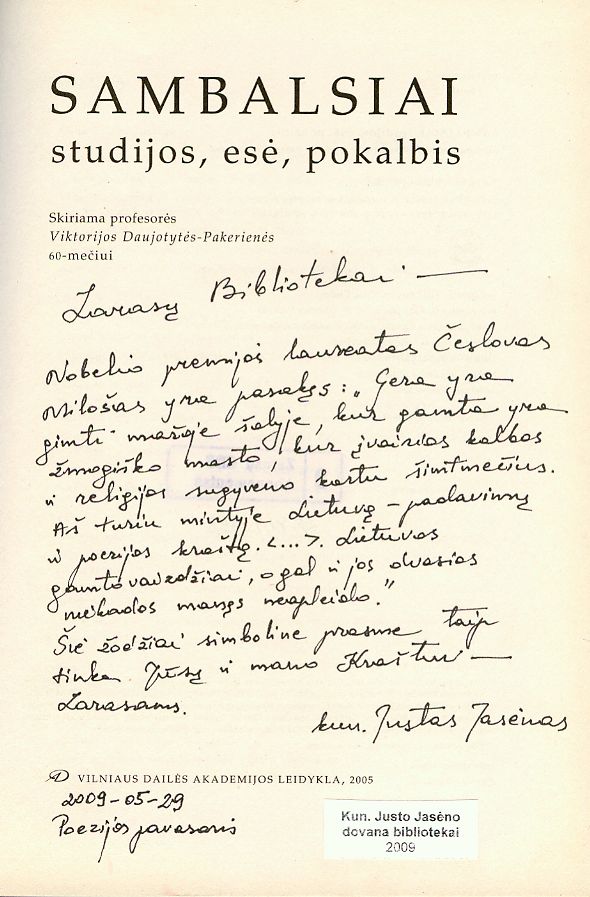 SAMBALSIAI
studijos, esė, pokalbis
Skiriama profesorės
Viktorijos Daujotytės-Pakerienės
60-mečiui
Zarasų Bibliotekai —
Nobelio premijos laureatas Česlovas
Milošas yra pasakęs: „Gera yra
gimti mažoje šalyje, kur gamta yra
žmogiško masto, kur įvairios kalbos
ir religijos sugyveno kartu šimtmečius.
Aš turiu mintyje Lietuvą – padavimų
ir poezijos kraštą. <...>. Lietuvos
gamtovaizdžiai, o gal ir jos dvasios
niekados manęs neapleido."
Šie žodžiai simboline prasme taip
tinka Jūsų ir mano Kraštui —
Zarasams.
kun. Justas Jasėnas
VILNIAUS DAILĖS AKADEMIJOS LEIDYKLA, 2005
2009-05-29
Poezijos pavasaris
Kun. Justo Jasėno
dovana bibliotekai
2009